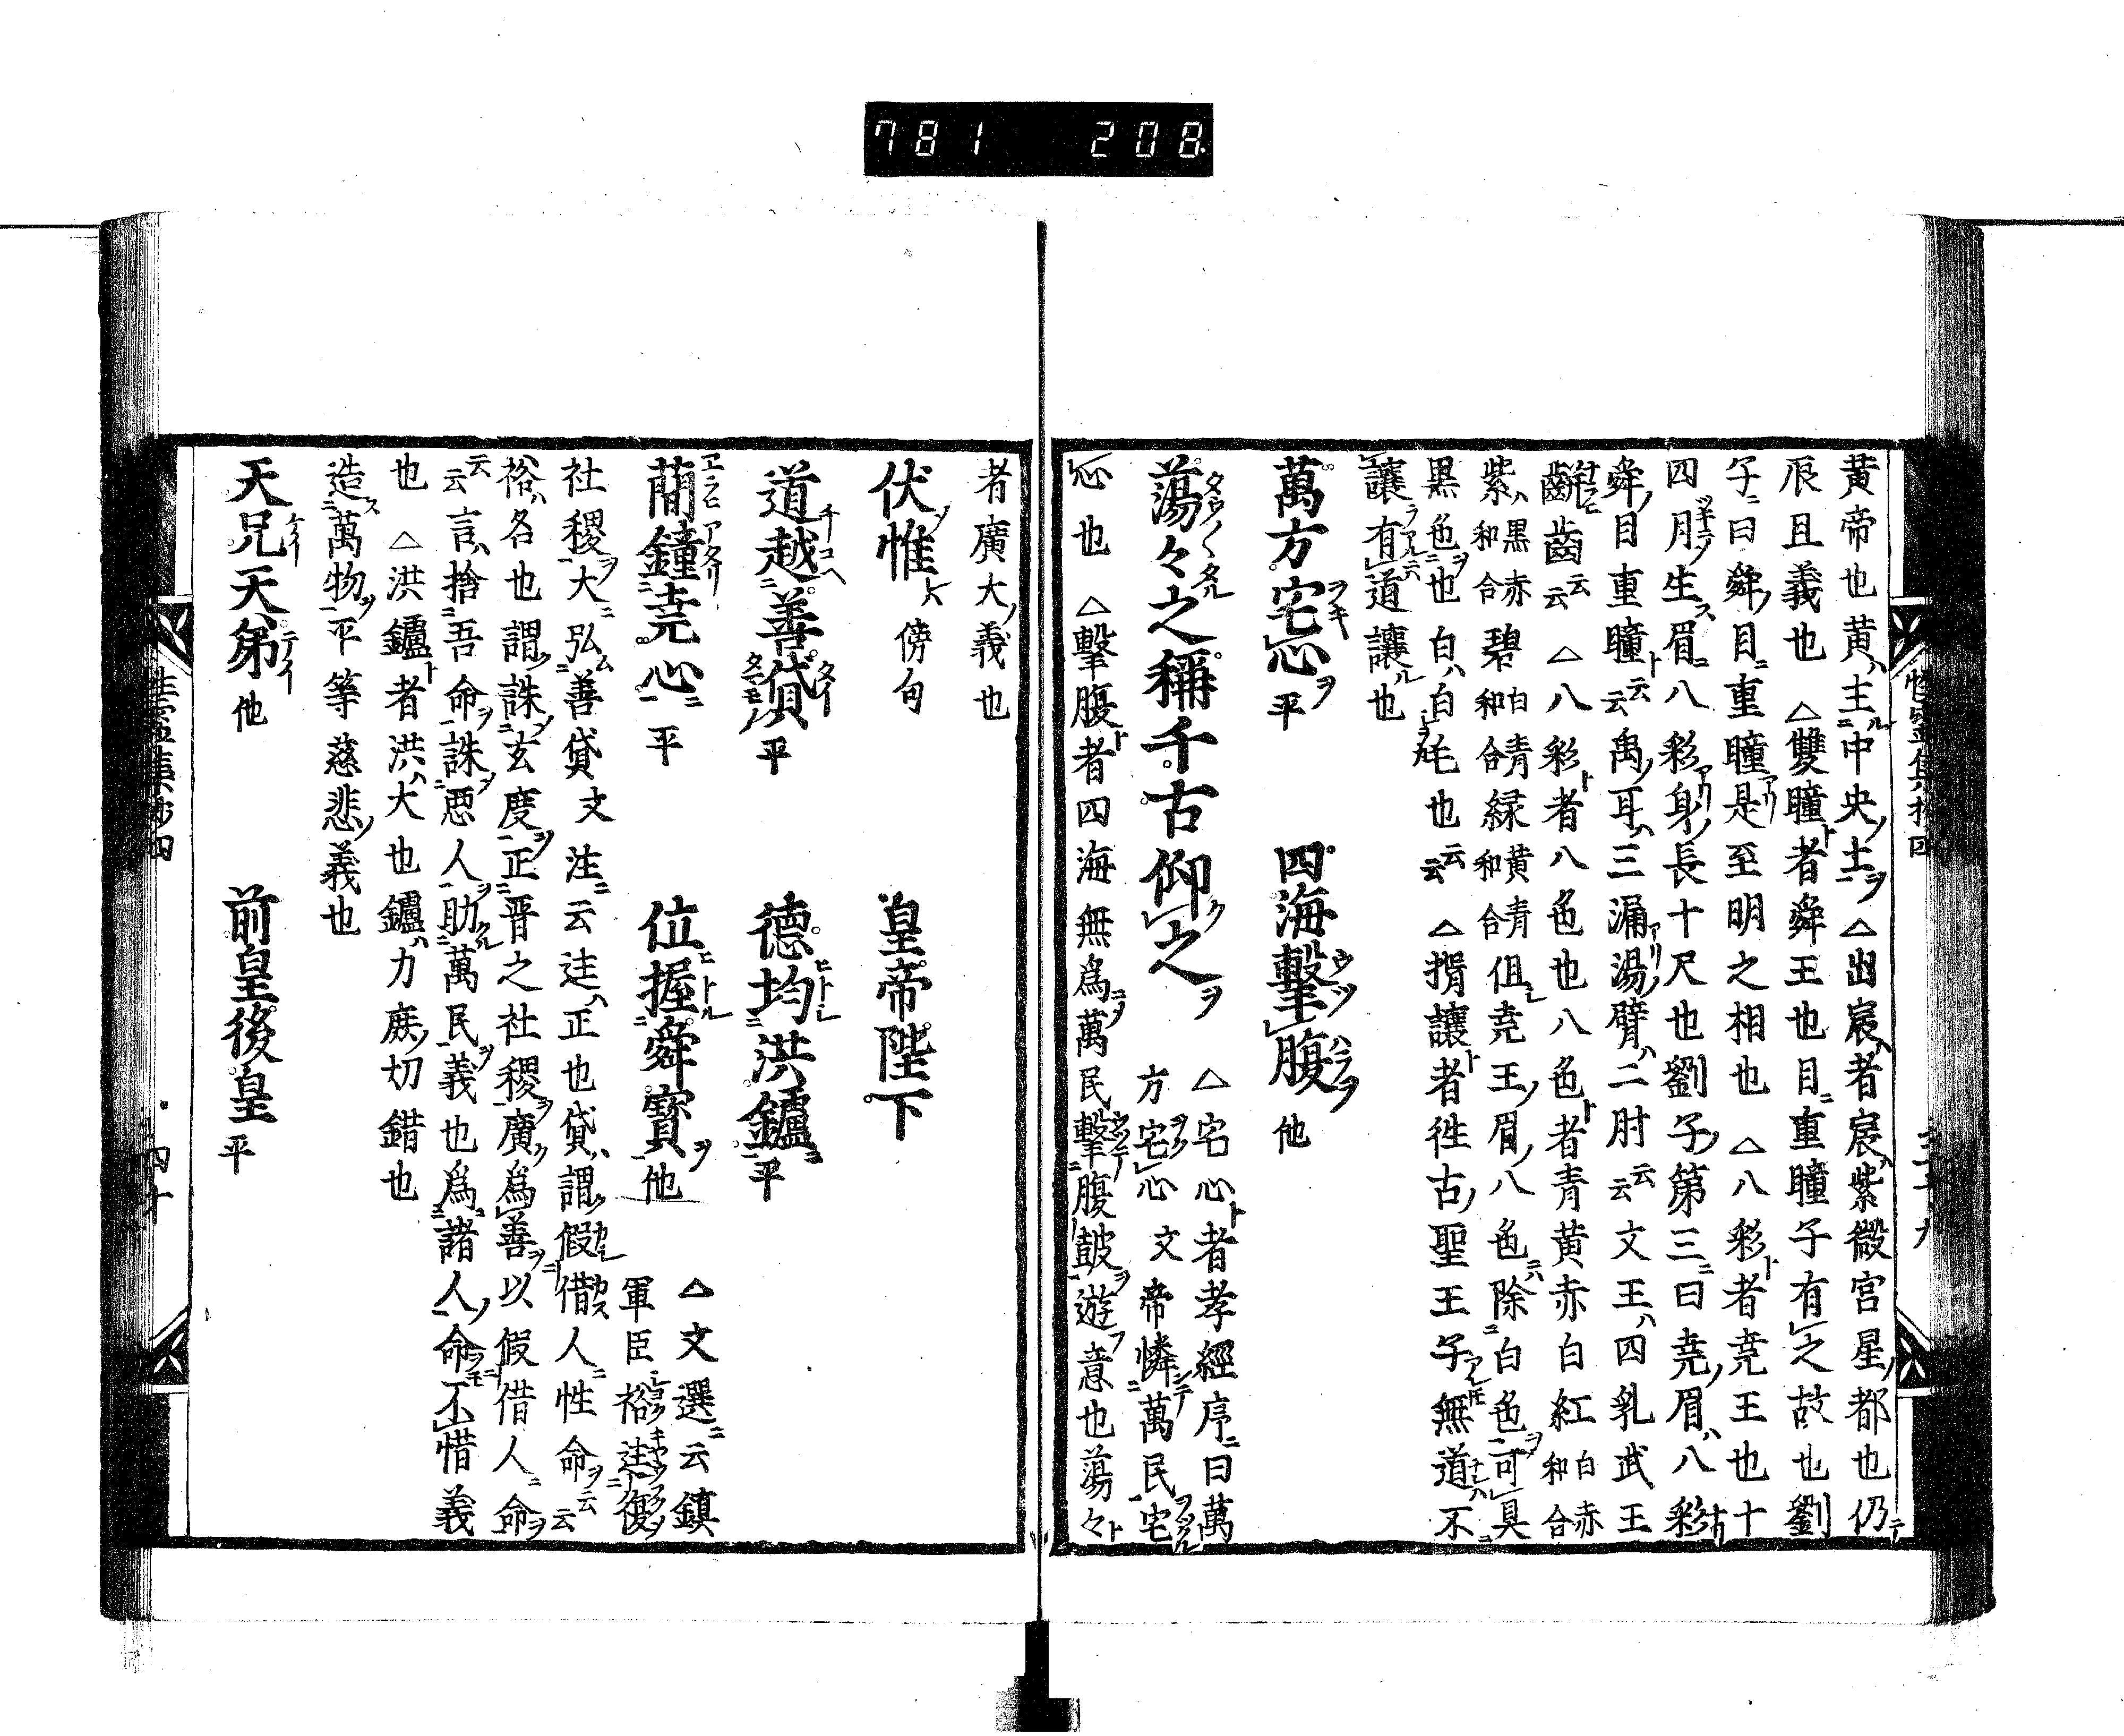 781 208
黄帝也黄ハ主ル中央ノ土ヲ△出宸ト者宸ハ紫微宮星ノ都也仍テ
辰且義也 △雙瞳ト者舜王也目ニ重瞳子有之故也劉
子ニ曰舜ノ目ニ重瞳アリ是至明之相也 △八彩ト者尭王也十
四月ニ生ス眉ニ八彩アリ身ノ長十尺也劉子ノ第三ニ曰尭ノ眉ハ八彩
舜ノ目重瞳ト云云禹ノ耳ハ三漏湯ノ臂ハ二肘云云文王ハ四乳武王
齒云云 △八彩ト者八色也八色ト者青黄赤白紅白赤和合
紫ハ黒赤和合碧白青和合緑黄青和合但シ尭王ノ眉ノ八色ニハ除白色ヲ可具
黒色ヲ也白ハ白毛也云云 △揖讓ト者徃古ノ聖王子アレトモ無道ナレハ不
讓有道ニ讓ル也
萬方宅心ヲ平 四海撃腹ヲ他
蕩々之稱千古仰之ヲ △宅心ト者孝經序ニ曰萬
方宅心文帝憐萬民宅
心也 △撃腹ト者四海無爲萬民撃腹鼓遊意也蕩々ト
者廣大ノ義也
伏惟 傍句 皇帝陛下
道越善貸平 德均洪鑪平
蕳鐘尭心平 位握舜寳他 △文選ニ云鎮
軍臣裕 復
社稷大弘善貸文注ニ云 正也貸ハ謂假借人ニ性命ヲ云云
裕ハ名也謂誅玄度正晋之社稷廣爲善以假借人ニ命ヲ
云云言ハ捨吾命ヲ誅惡人助萬民義也爲諸人ノ命不惜義
也 △洪鑪ト者洪ハ大也鑪ハ力 切錯也
造萬物ヲ平等慈悲ノ義也
天兄天弟他 前皇後皇平